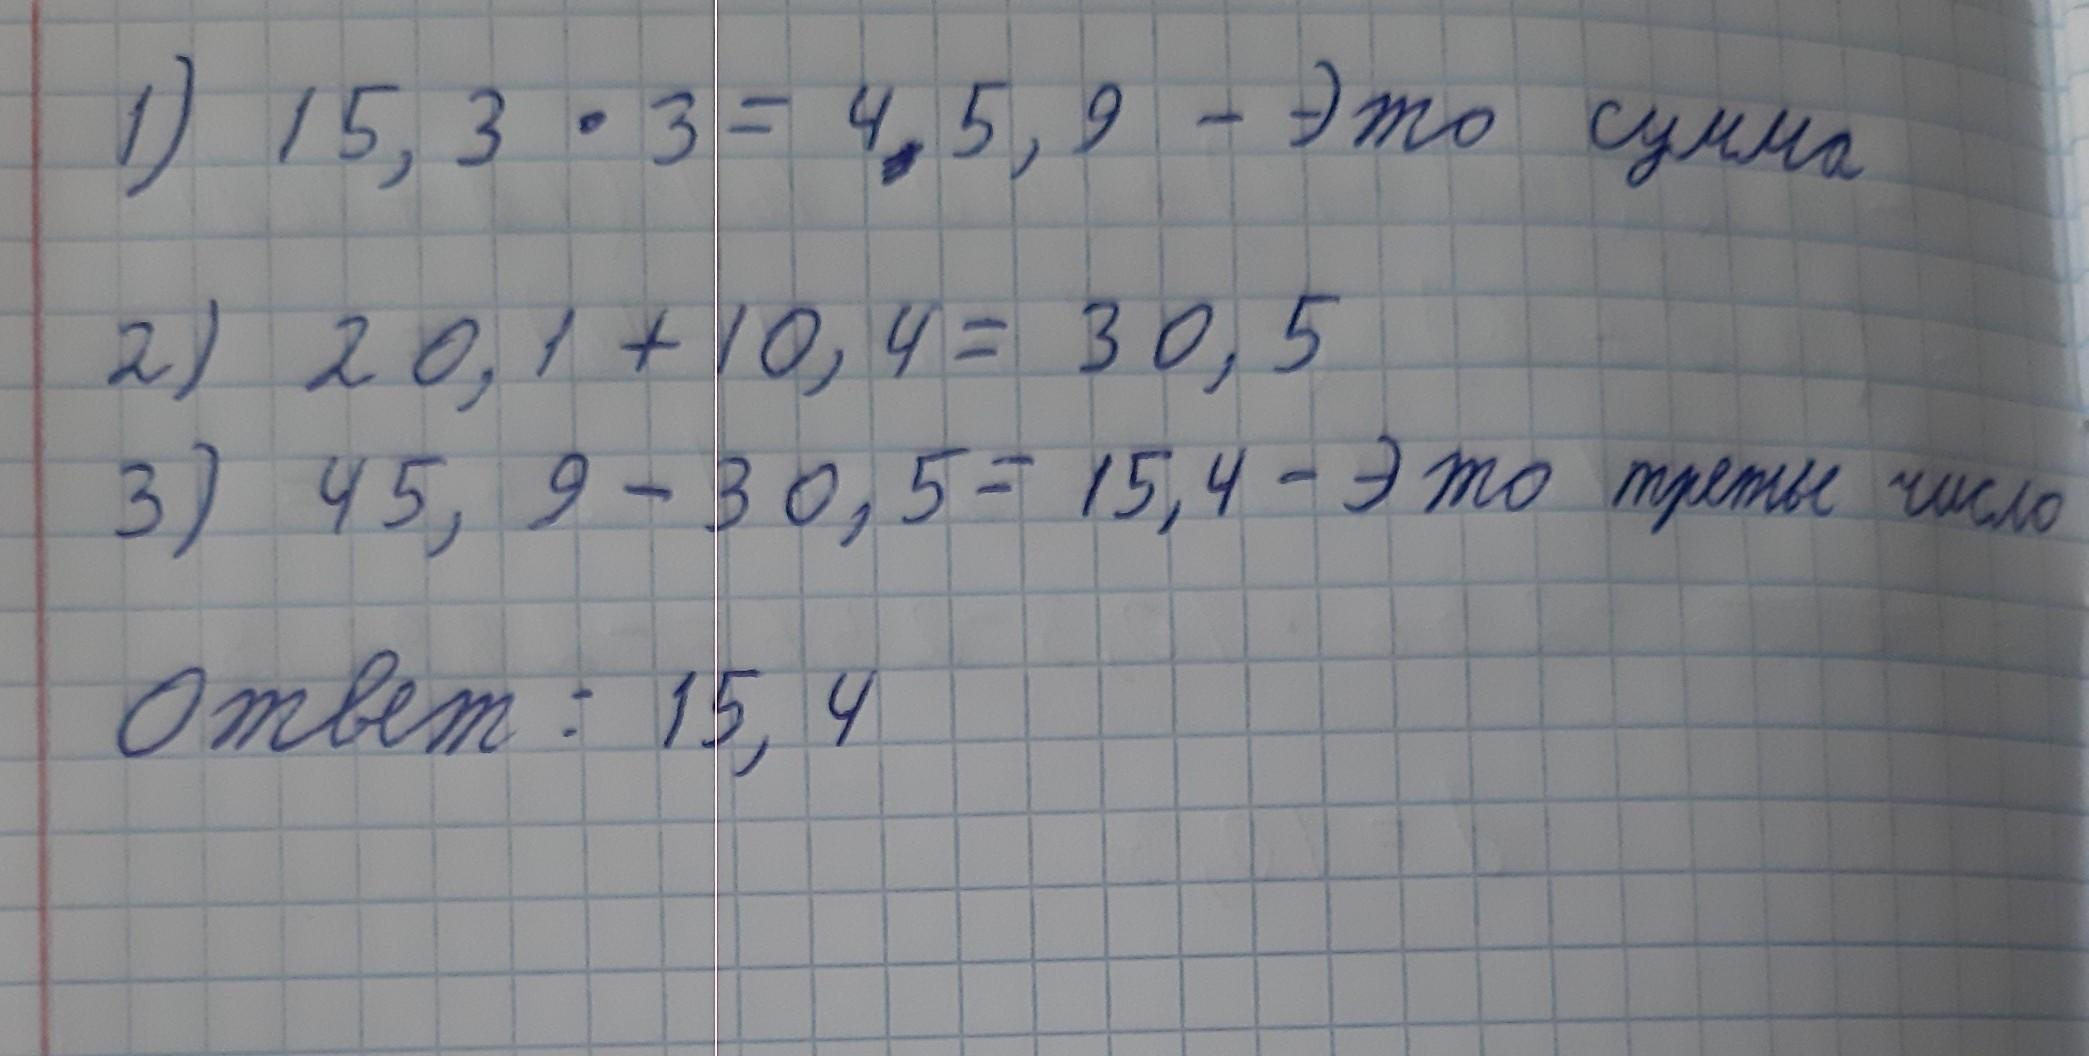 1) 15,3 · 3 = 45,9 - Это сумма
2) 20,1 + 10,4 = 30,5
3) 45,9 - 30,5 = 15,4 - Это третье число
Ответ: 15,4